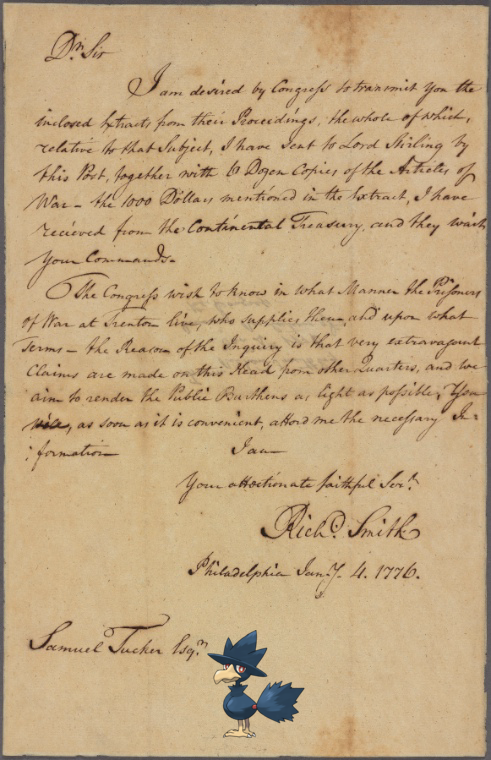 Dr. Sir
I am desired by Congress to transmit you the
inclosed Extracts from their Proceedings, the whole of which,
relative to that Subject, I have sent to Lord Stirling by
this Post, together with 6 Dozen Copies of the Articles of
War - the 1000 Dollars mentioned in the Extract, I have
recieved from the Continental Treasury, and they wait
your Commands.
The Congress wish to know in what Manner the Prisoners
of War at Trenton live, who supplies them, and upon what
Terms - the Reason of the Inquiry is that very extravagant
Claims are made on this Head from other Quarters, and we
aim to render the Public Burthens as light as possible, You
as soon as it is convenient, afford me the necessary In-
:formation
I am
Your affectionate faithful Servt.
Richd. Smith
Philadelphia Jany. 4. 1776.
Samuel Tucker Esqr.